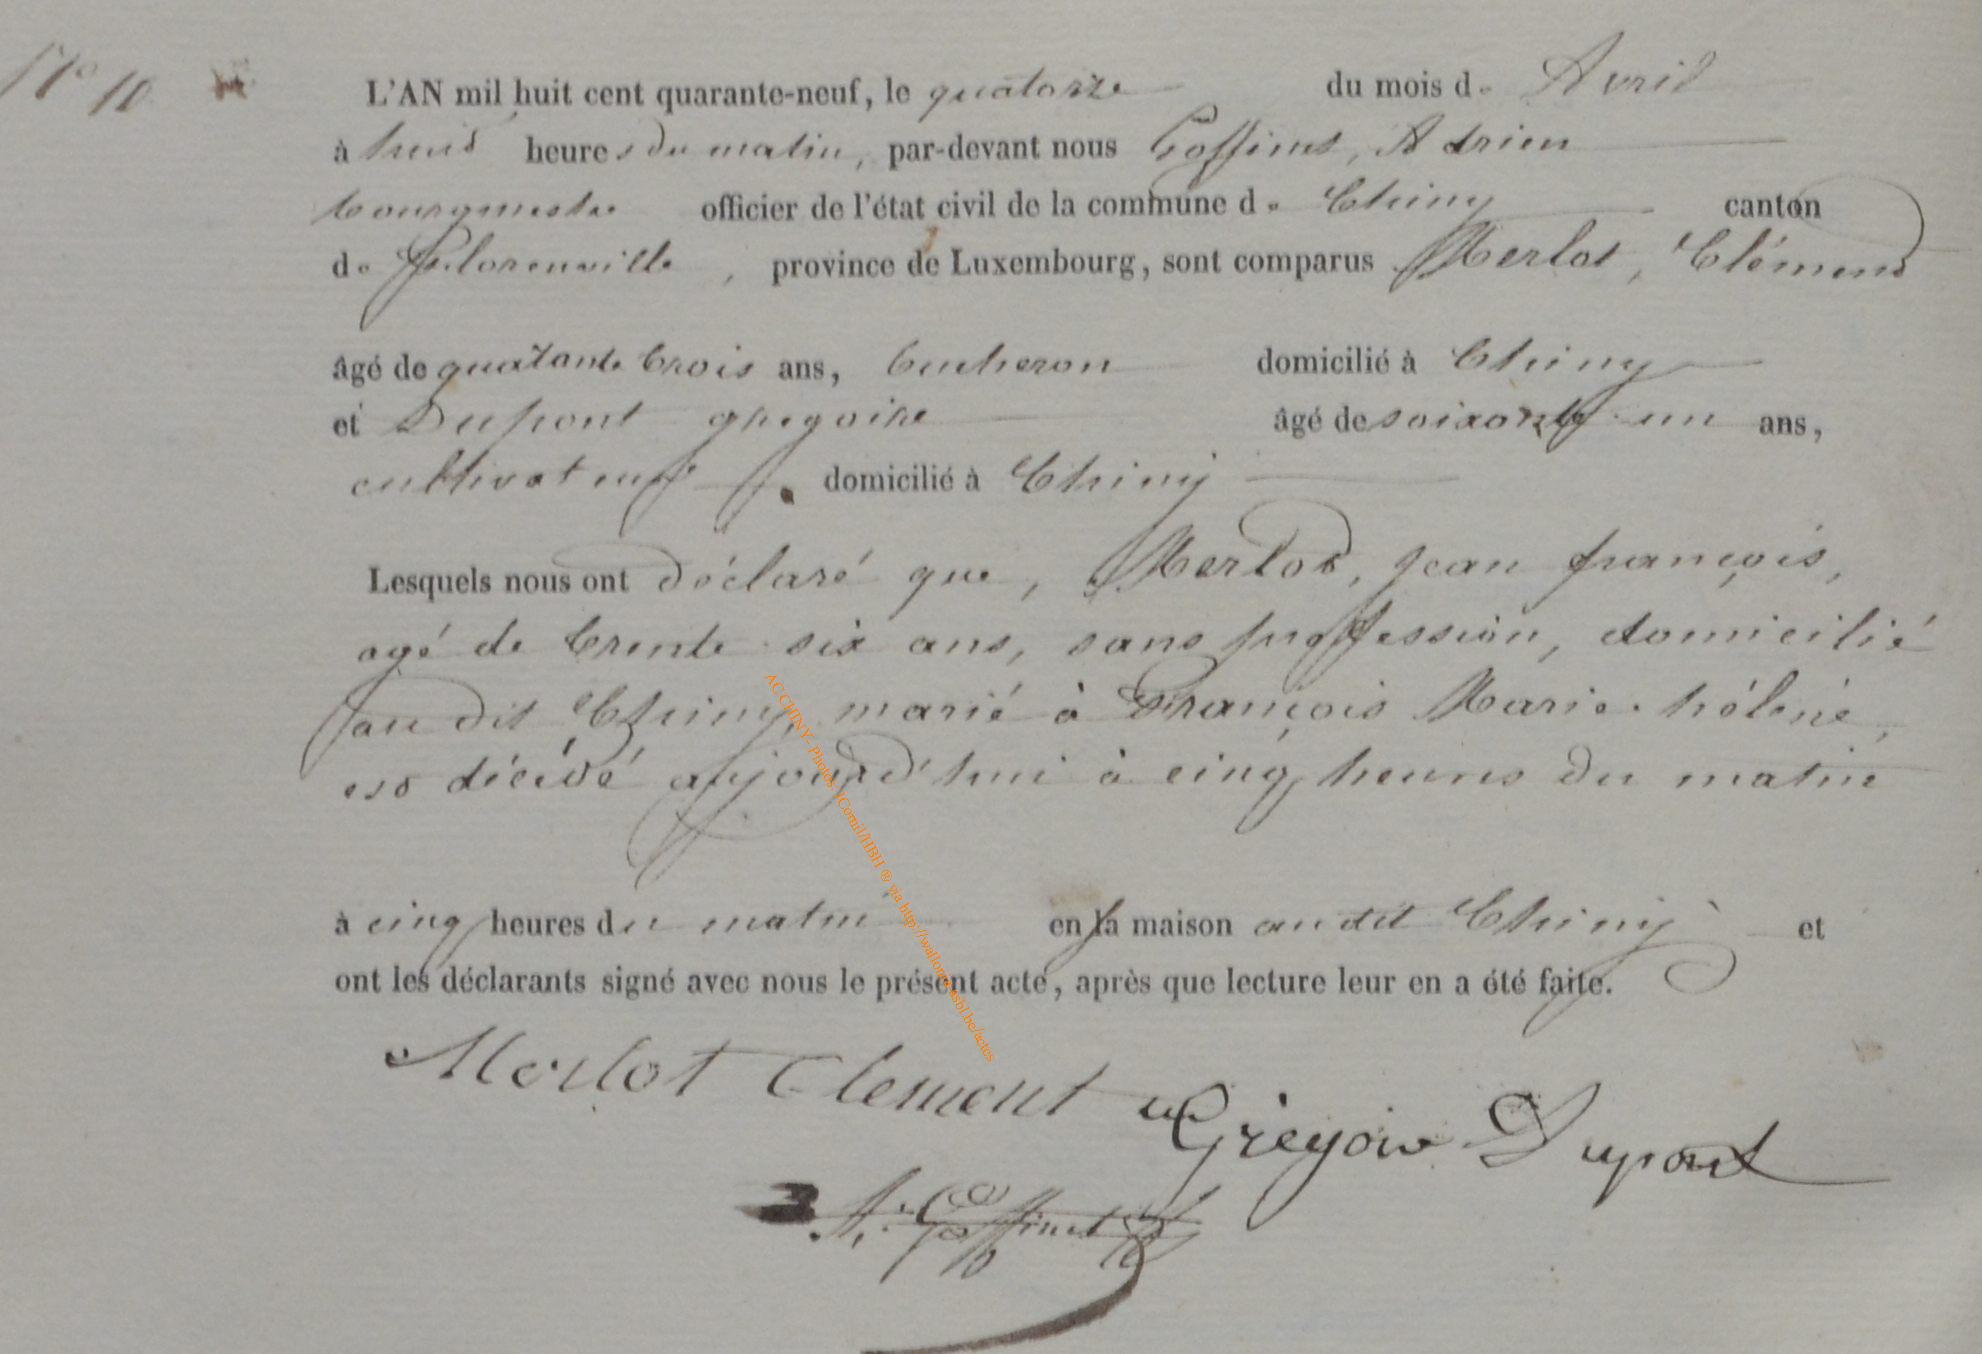 N° 10
L'AN mil huit cent quarante-neuf, le quatorze du mois d'Avril
à huit heures du matin, par-devant nous Goffinet, Adrien
bourgmestre officier de l'état civil de la commune de Chiny canton
de florenville, province de Luxembourg, sont comparus Merlot, Clément
âgé de quatante trois ans, bucheron domicilié à Chiny
et Dupont gregoire âgé de soixante un ans,
cultivateur domicilié à Chiny
Lesquels nous ont déclaré que, Merlot, Jean françois,
agé de trente six ans, sans proffession, domicilié
au dit Chiny, marié à François Marie héléne,
est décédé aujourd'hui à cinq heures du matin
à cinq heures du matin en sa maison au dit Chiny et
ont les déclarants signé avec nous le présent acte, après que lecture leur en a été faite.
Merlot Clement Grégoire Dupont
A. Goffinet
AC CHINY- Photos JCornil/HBH ® via http://wallonia-asbl.be/actes